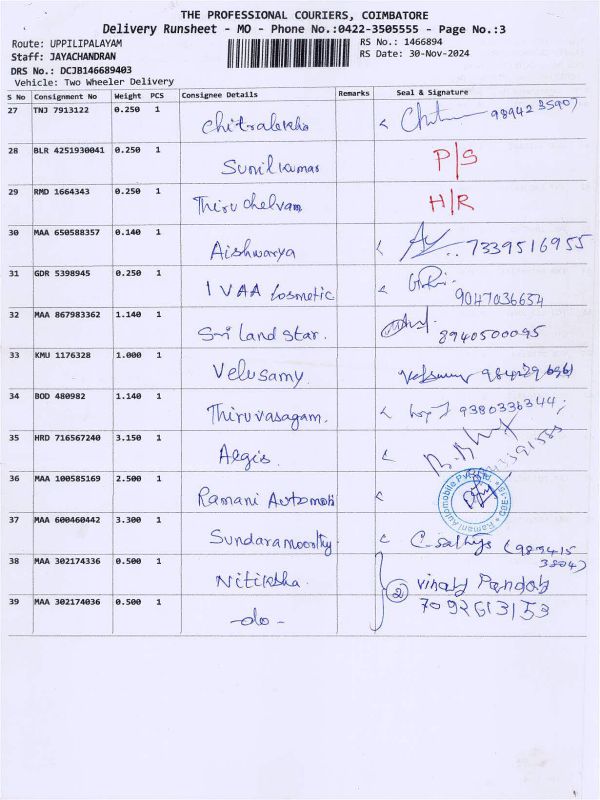 THE PROFESSIONAL COURIERS, COIMBATORE
Delivery Runsheet - MO - Phone No.:0422-3505555 - Page No.:3
Route: UPPILIPALAYAM RS No.: 1466894
Staff: JAYACHANDRAN RS Date: 30-Nov-2024
DRS No.: DCJB146689403
Vehicle: Two Wheeler Delivery
S No Consignment No Weight PCS Consignee Details Remarks Seal & Signature
27 TNJ 7913122 0.250 1 Chitralekha 9894235907
28 BLR 4251930041 0.250 1 Sunil kumar P|S
29 RMD 1664343 0.250 1 Thiru chelvam H|R
30 MAA 650588357 0.140 1 Aishwarya 7339516955
31 GDR 5398945 0.250 1 IVAA Cosmetic 9047036654
32 MAA 867983362 1.140 1 Sri land star. 8940500095
33 KMU 1176328 1.000 1 Velusamy.
34 BOD 480982 1.140 1 Thiruvasagam. 9380336344
35 HRD 716567240 3.150 1 Aegis.
36 MAA 100585169 2.500 1 Ramani Automob Ramani Automobile Pvt Ltd
37 MAA 600460442 3.300 1 Sundaramoorthy
38 MAA 302174336 0.500 1 Nitiksha. 2 Vinay Pandey
39 MAA 302174036 0.500 1 -do- 7092613153